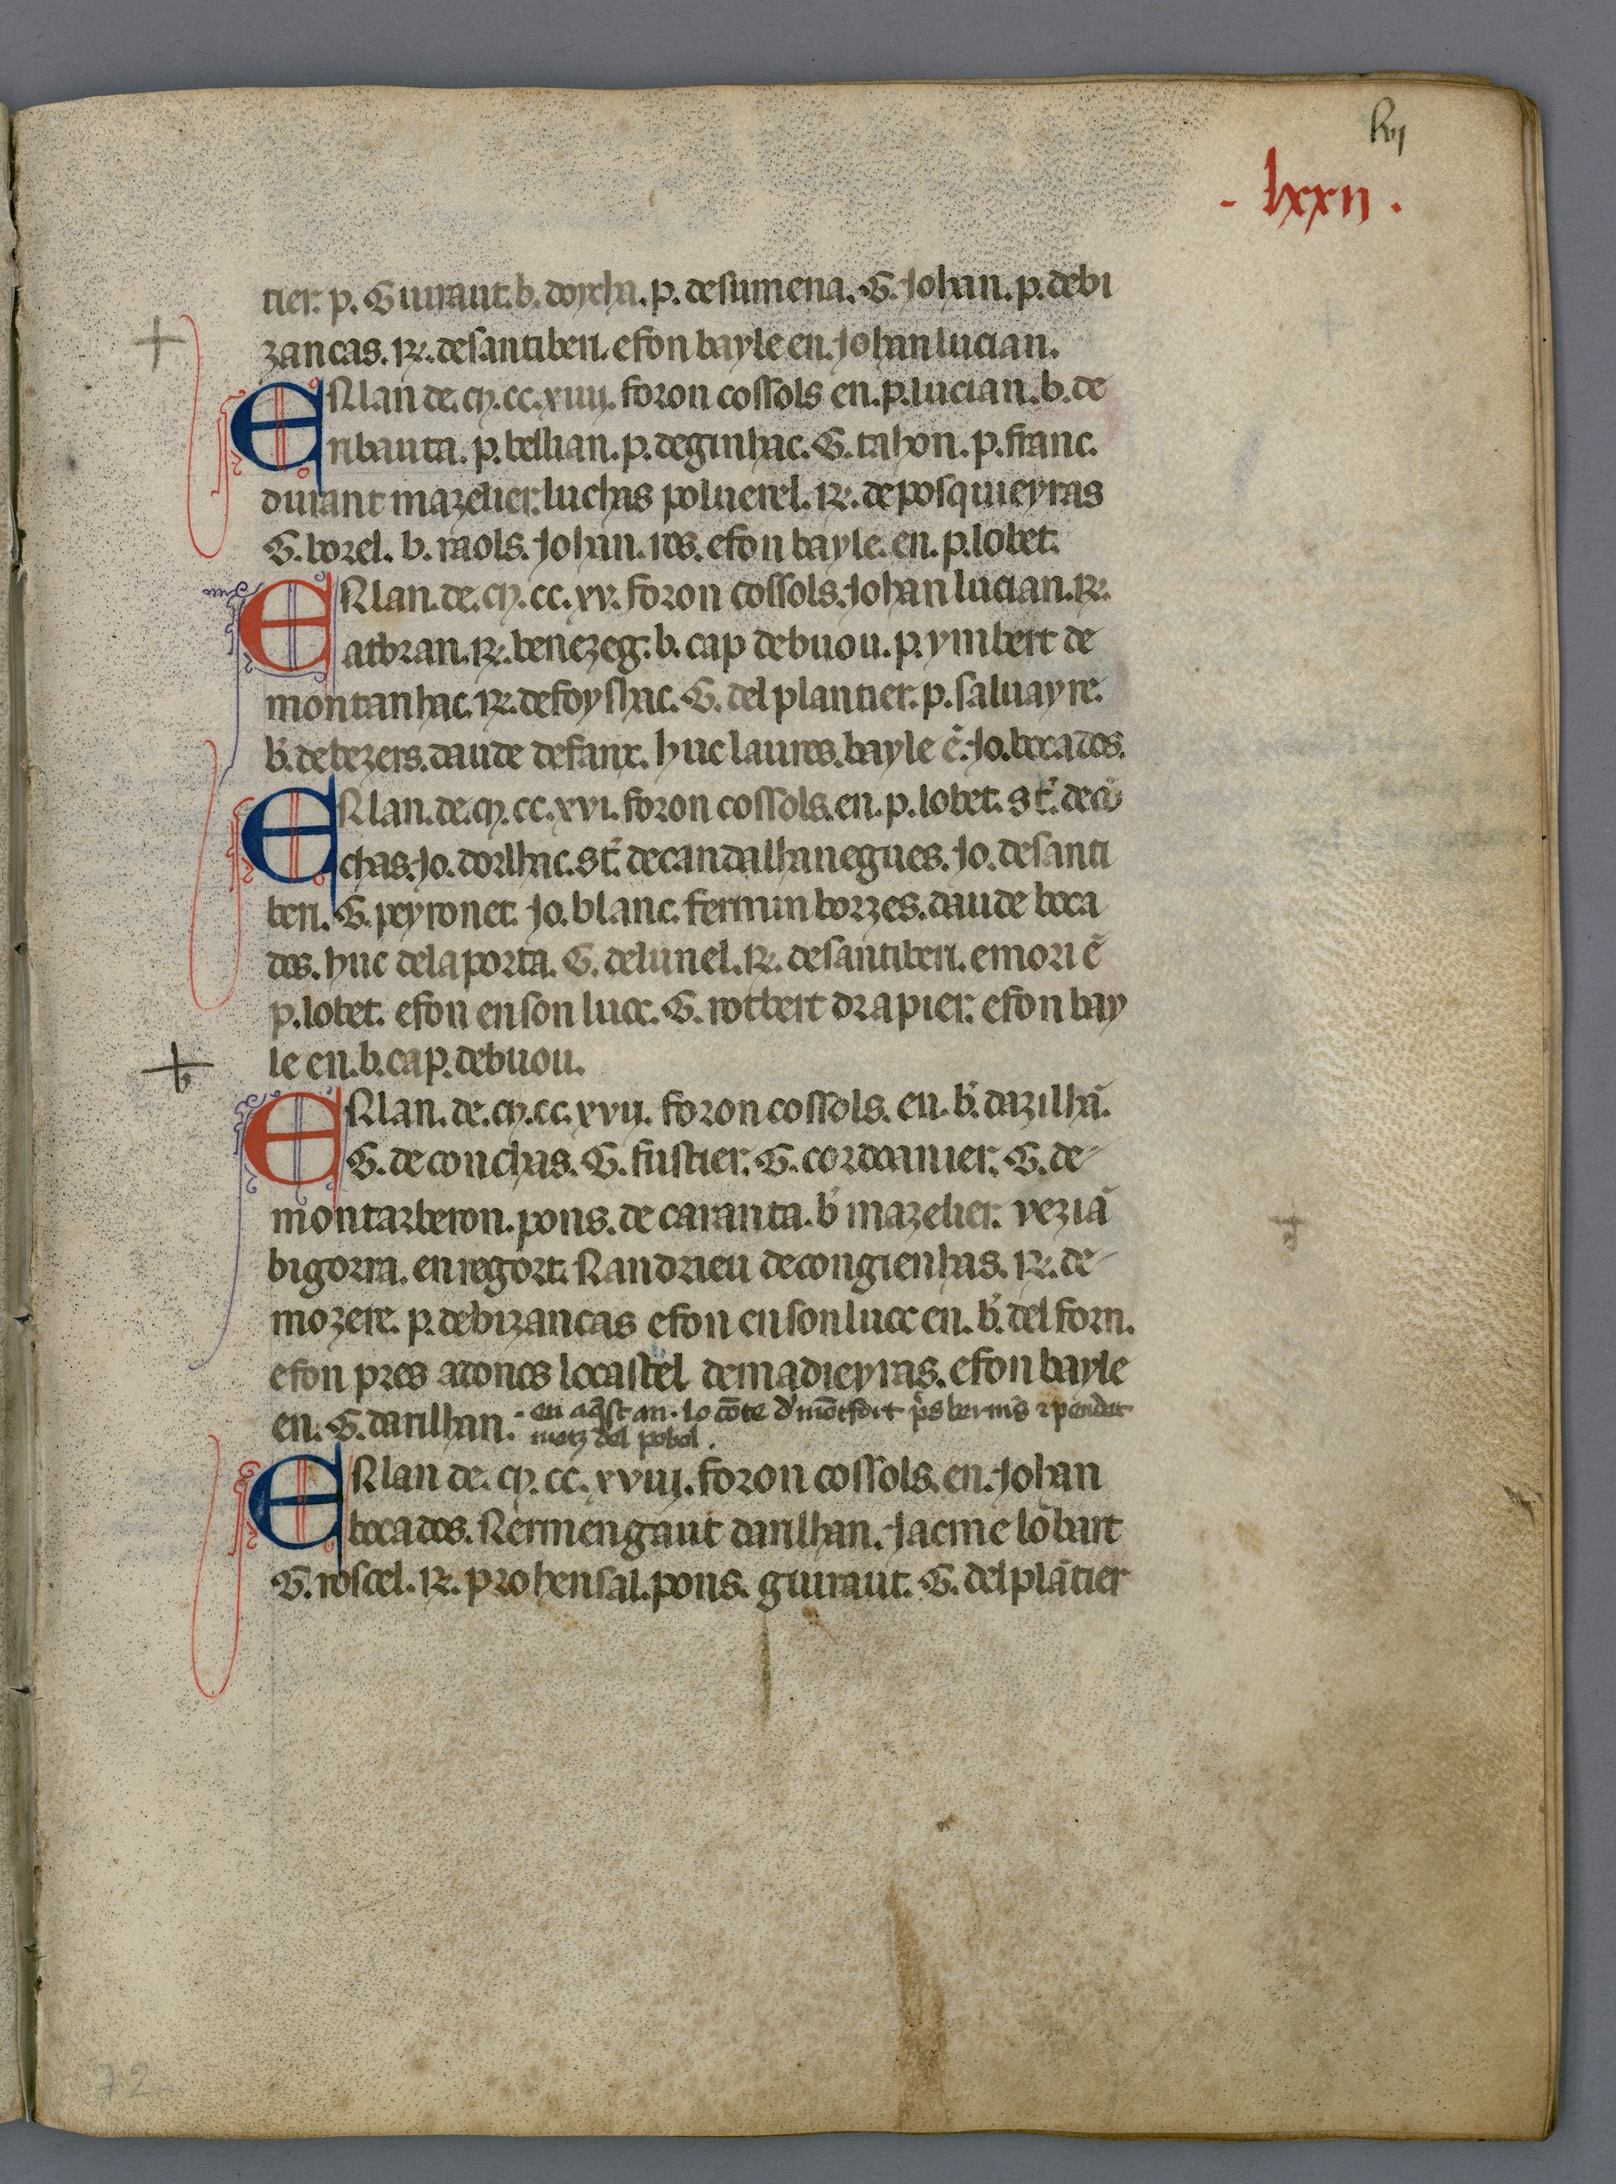 lxvj
- lxxij .
tier. p. Guiraut. b. doycha. p. desumena. G. Johan. p. debi
zancas. R. desantiberi. efon bayle en. Johan lucian.
ENlan de. M. cc. xiiij. foron cossols en. p. lucian. b. de
ribauta. p. bessian. p. deginhac. G. tahon. p. franc.
durant mazelier. luchas poluerel. R. deposquieyras
G. borel. b. raols. Johan. ros. efon bayle. en. p. lobet.
ENlan. de. M. cc. xv. foron cossols. Johan lucian. R.
atbran. R. benezeg. b. cap debuou. p. ymbert de
montanhac. R. defoyshac. G. del plantier. p. saluayre.
b̓. debezers. daude defanx. huc laures. bayle ē. Jo. bocados.
ENlan. de. M. cc. xvi. foron cossols. en. p. lobet. st̄. decō
chas. Jo. dorlhac. st̄. decandalhanegues. Jo. desanti
beri. G. peyronet. Jo. blanc. fermin borzes. daude boca
dos. huc delaporta. G. delunel. R. desantiberi. emori ē
p. lobet. efon enson luoc. G. rotbert drapier. efon bay
le en. b. cap. debuou.
ENlan. de. M. cc. xvij. foron cossols. en. b̓. dazilhā.
G. de conchas. G. fustier. G. cordoanier. G. de
montarberon. pons. de caranta. b̓ mazelier. veziā
bigorra. en regort. Nandrieu decongienhas. R. de
mozere. p. debizancas efon ensonluoc en. b̓. delforn.
efon pres adoncs locastel demadieyras. efon bayle
en. G. darilhan. en aq̄st an. lo cōte d' mōtfort p̄s bernis 7 pendet
motz del pobol.
ENlan de. M. cc. xviij. foron cossols. en. Johan
bocados. Nermengaut darilhan. Jacme lōbart
G. roscel. R. prohensal. pons. guiraut. G. delplātier
72